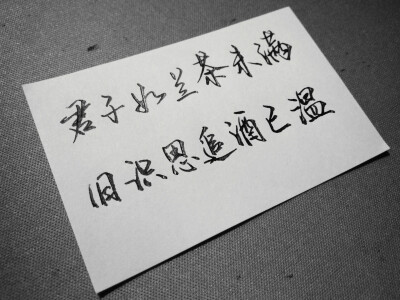 君子如兰茶未满
旧识思追酒已温